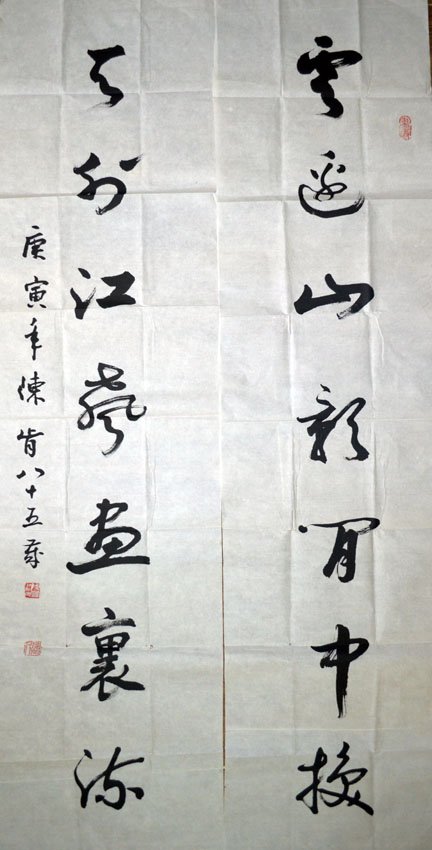 雲邊山影閒中換
天外江聲畫裏流
庚寅年陳肯八十五歲